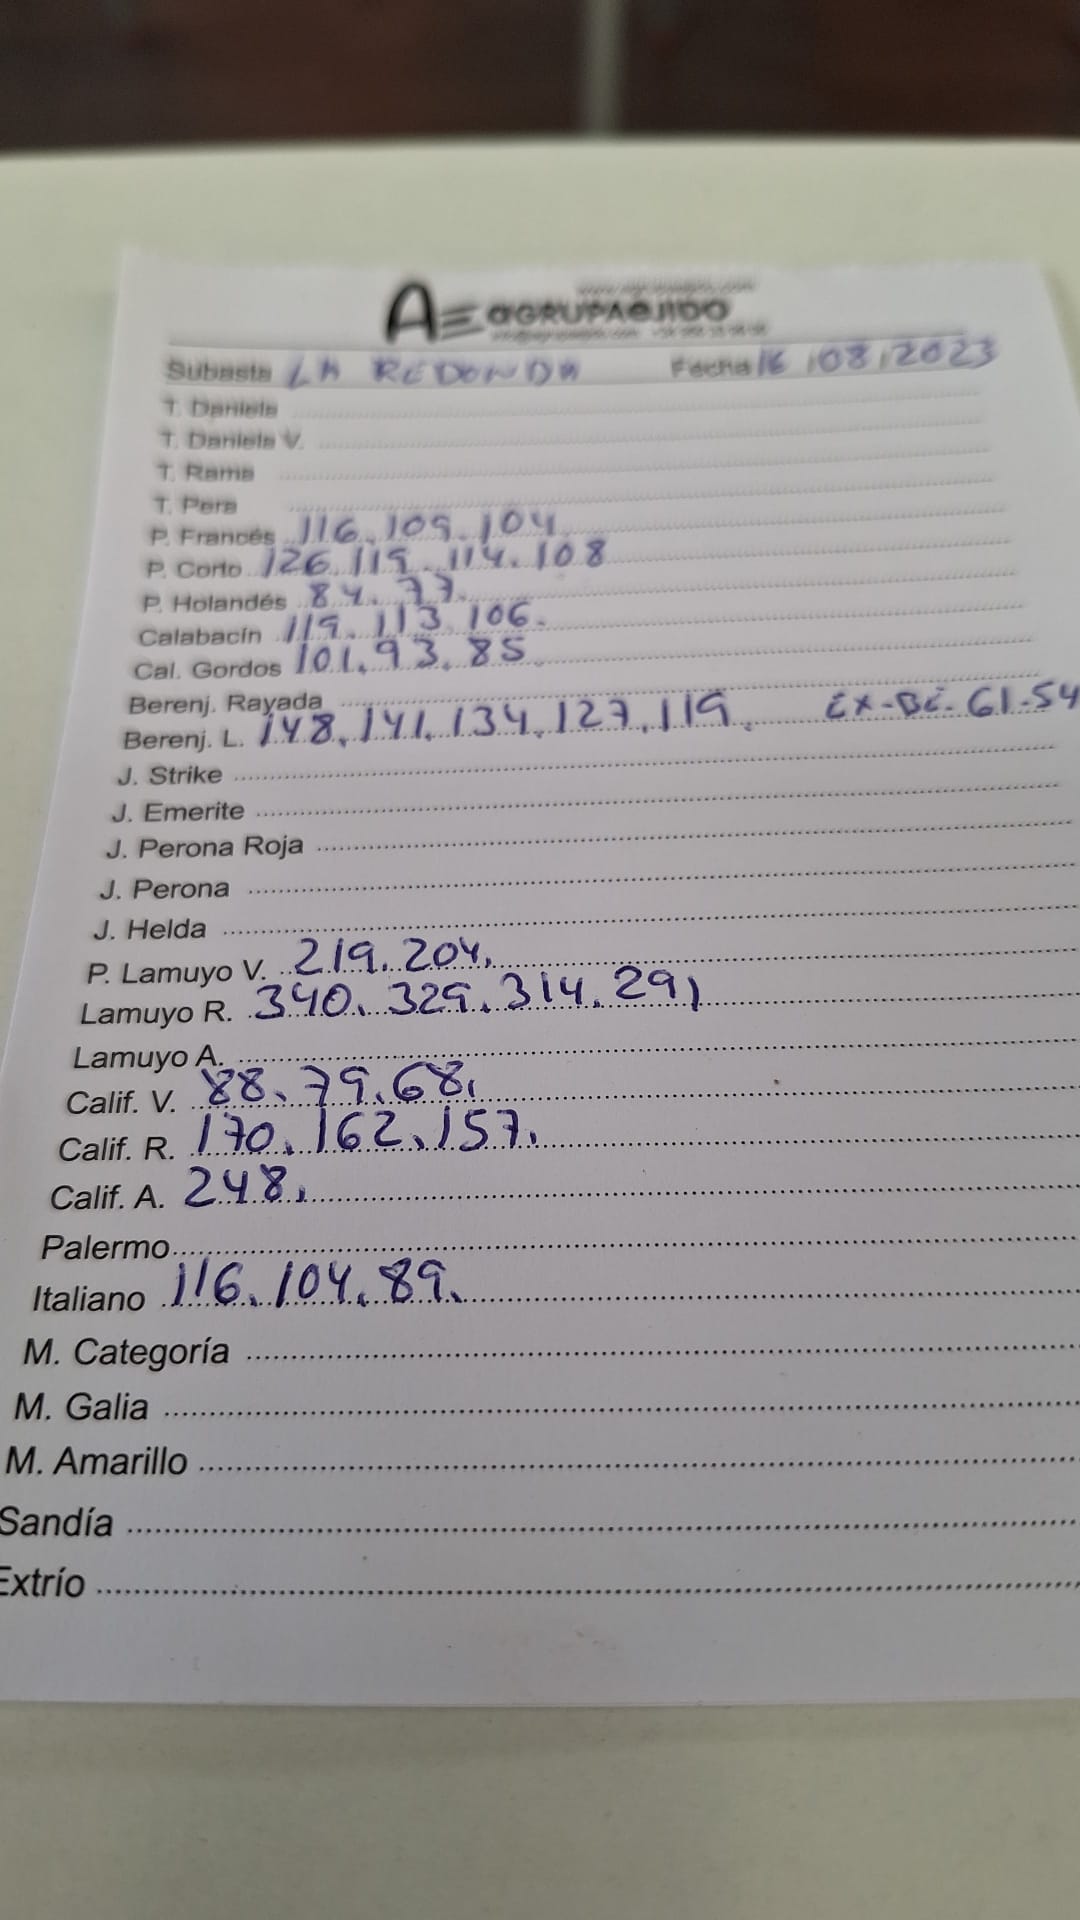 AE aGRUPAeJIDO
Subasta LA REDONDA Fecha 16/08/2023
T. Daniela
T. Daniela V.
T. Rama
T. Pera
P. Francés 116. 109. 104.
P. Corto 126. 119. 114. 108
P. Holandés 84. 77.
Calabacín 119. 113. 106.
Cal. Gordos 101. 93. 85.
Berenj. Rayada
Berenj. L. 148. 141. 134. 127. 119. EX-BE. 61-54
J. Strike
J. Emerite
J. Perona Roja
J. Perona
J. Helda
P. Lamuyo V. 219. 204.
Lamuyo R. 340. 329. 314. 291
Lamuyo A.
Calif. V. 88. 79. 68.
Calif. R. 170. 162. 157.
Calif. A. 248.
Palermo
Italiano 116. 104. 89.
M. Categoría
M. Galia
M. Amarillo
Sandía
Extrío